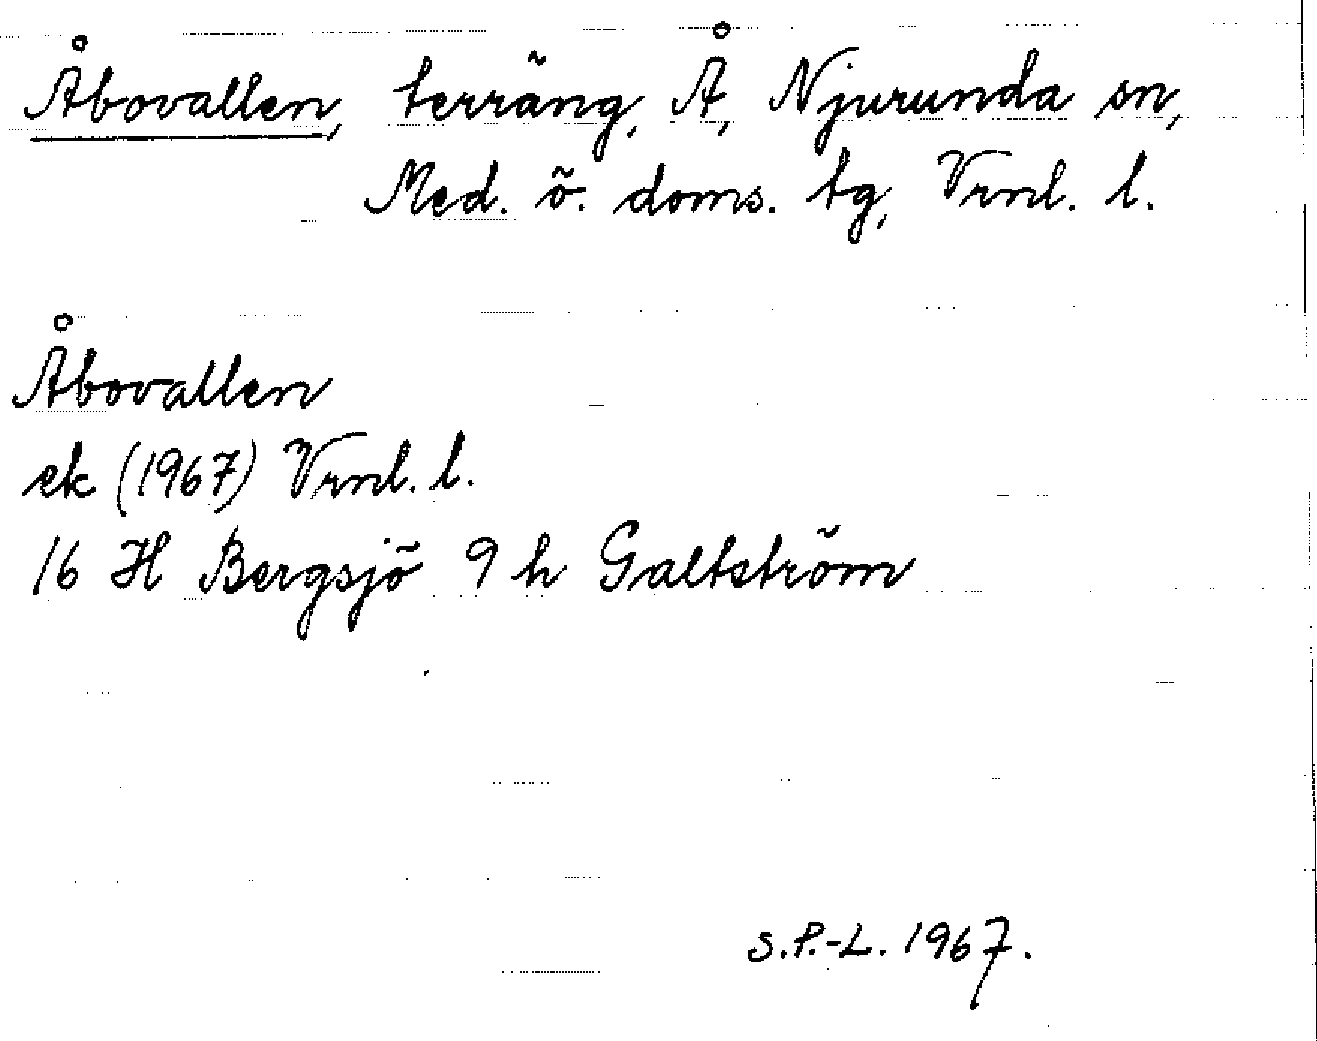 Åbovallen, terräng, Å, Njurunda sn,
Med. ö. doms. tg, Vrnl. l.
Åbovallen
ek (1967) Vrnl. l.
16 H Bergsjö 9 h Galtström
S.P.-L. 1967.